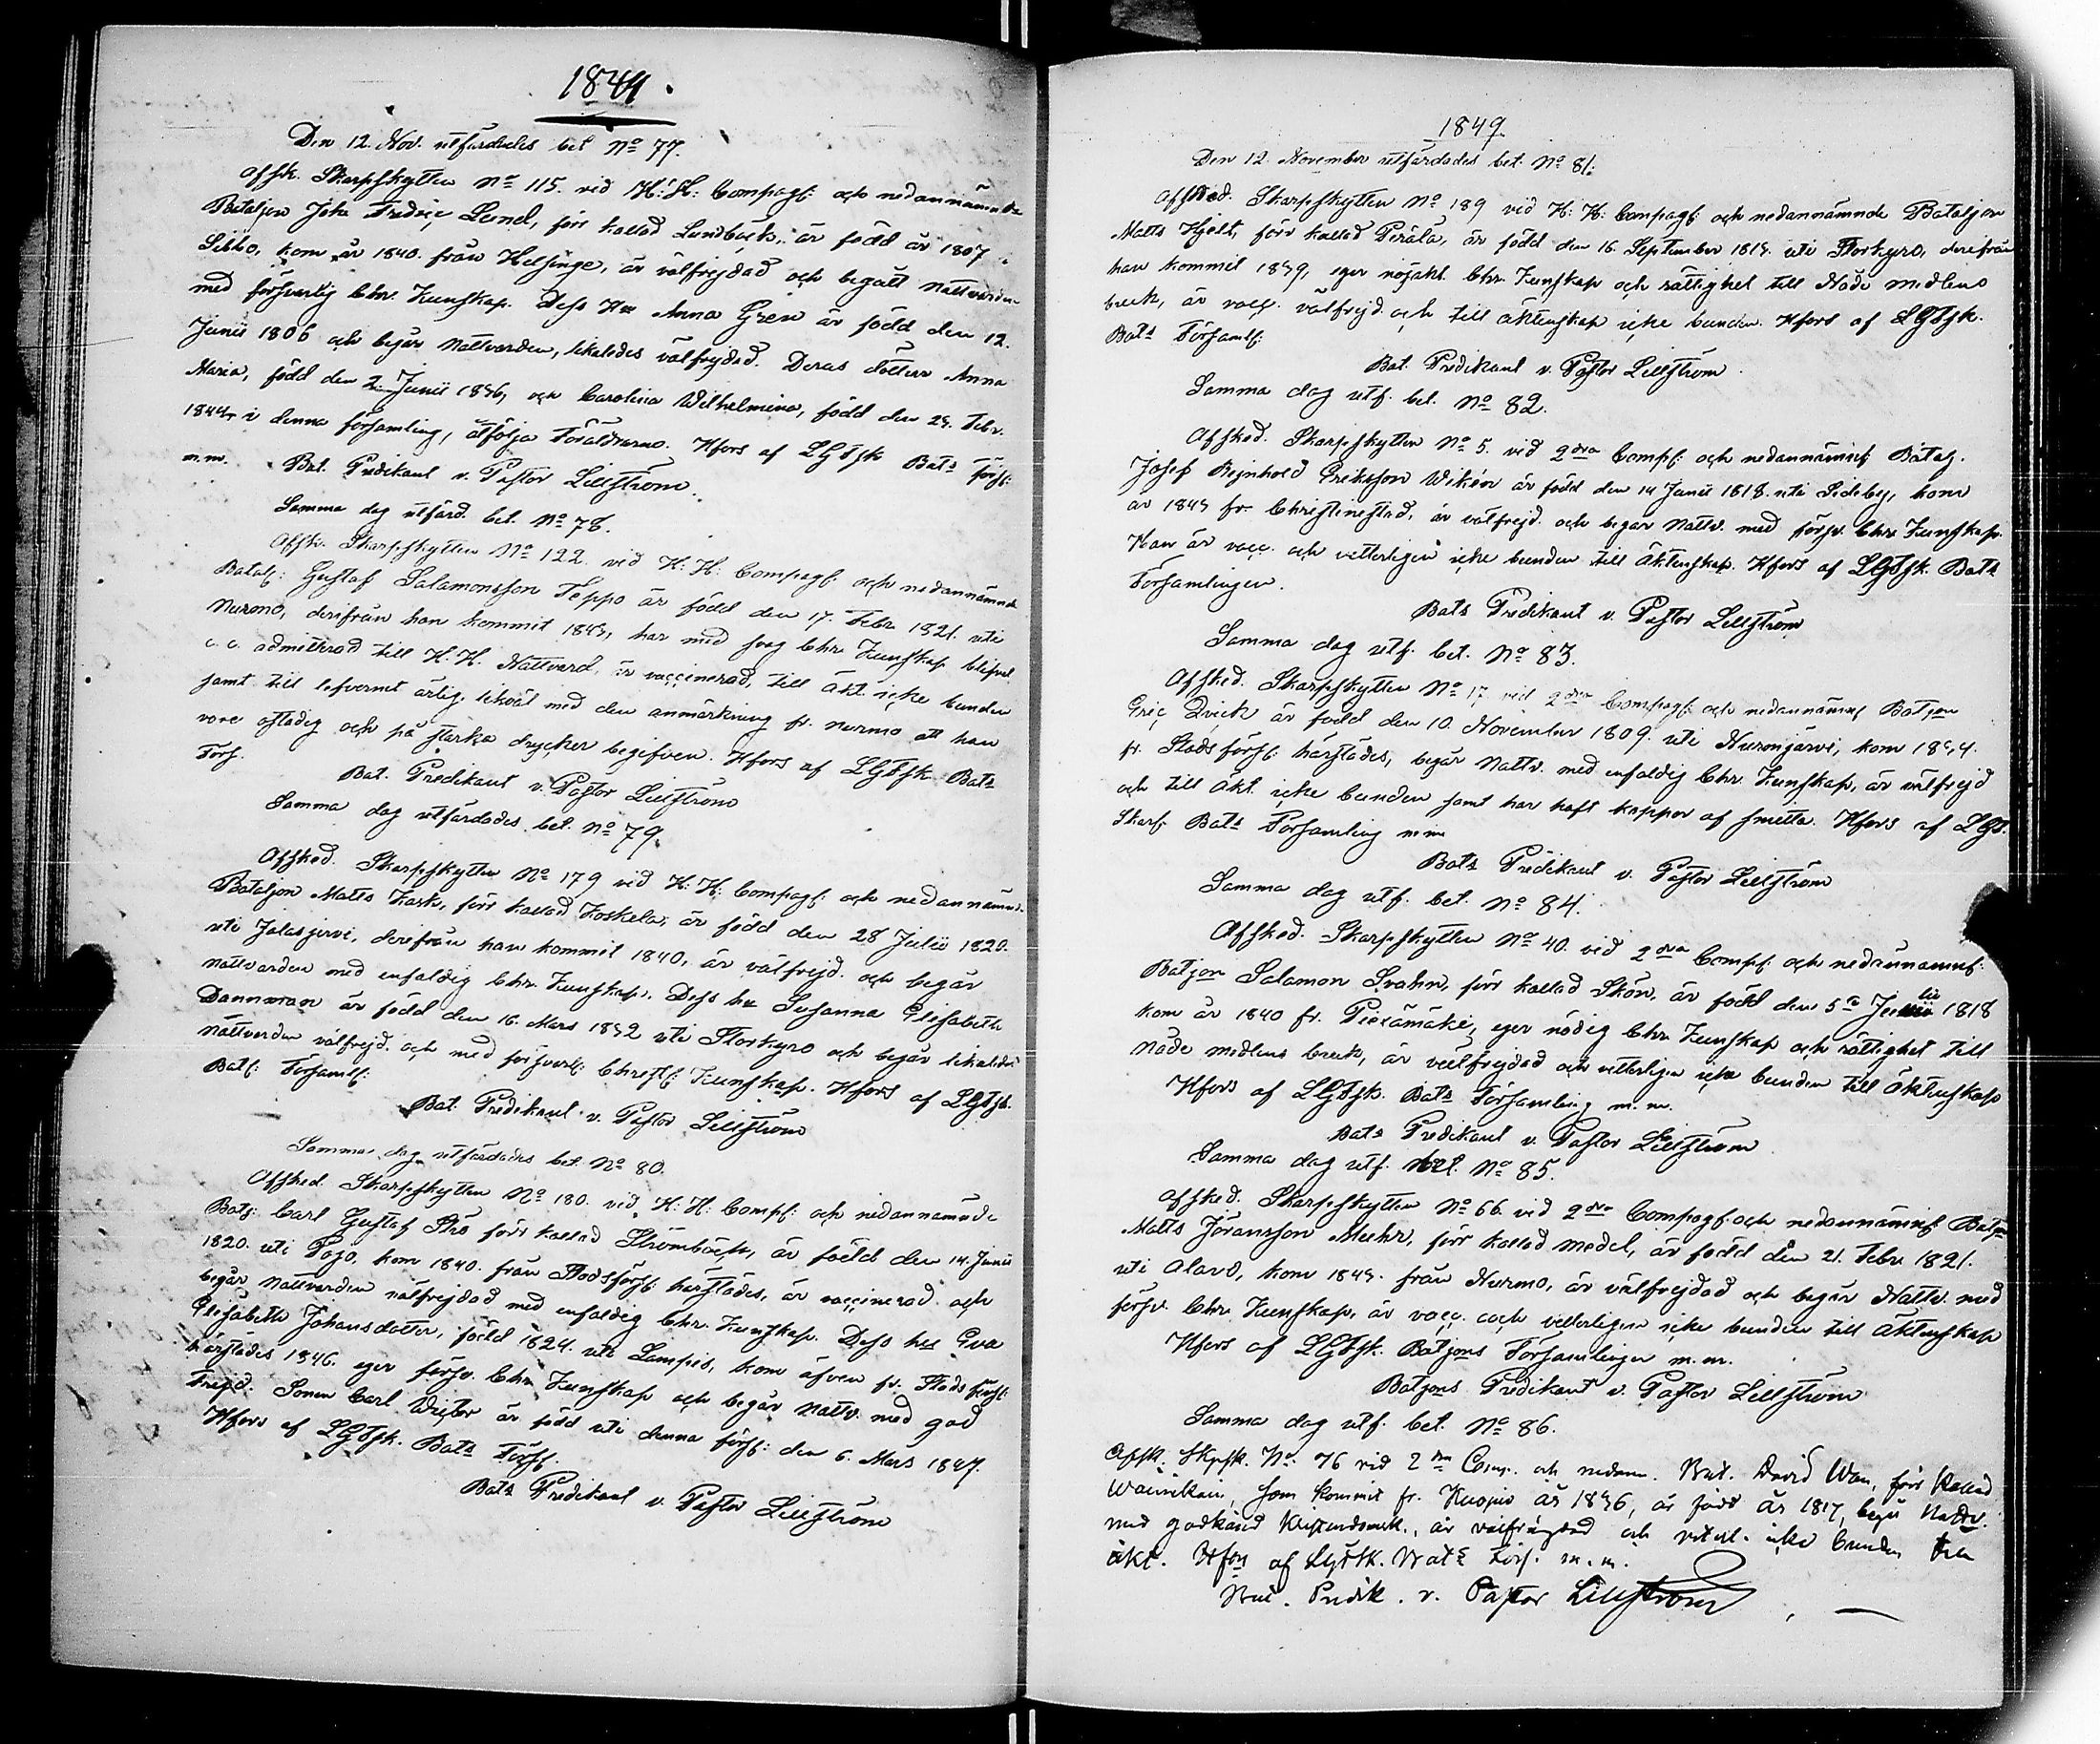 1849.
Den 12. Nov. utfärdades bet No 77.
Afsk. Skarpskytten No 115. vid H: H: Compagf: och nedannämnde
Bataljon Joh. Fredric Lund, förr kallad Lundbäck, är född år 1807 i
Sibbo, kom år 1840. från Helsinge, är välfrejdad och begått nattvarden
med försvarlig Chr. Kunskap. Dess Hu Anna Gren är född den 12.
Junii 1806 och begår nattvarden, likaledes välfrejdad. Deras döttrar Anna
Maria, född den 2. Junii 1836, och Carolina Wilhelmina, född den 29. Febr.
1844, i denna församling, åtfölja Föräldrarne. Hfors af LGFSk Bats förs:
m.m. Bat. Predikant v. Pastor Lillström.
Samma dag utfärd. bet. No 78.
Afsk. Skarpskytten No 122. vid H: H: Compagf: och nedannämnde
Batalj: Gustaf Salamonsson Seppo är född den 17. Febr. 1821. uti
Nurmo, derifrån han kommit 1845, har med svag Chr. Kunskap blifvit
admitterad till H. H. Nattvard, är vaccinerad, till äkt. icke bunden
samt till lefvernet ärlig, likväl med den anmärkning fr. Nurmo att han
vore ostadig och på starka drycker begifven. Hfors af LGFSk. Bats
Förs.
Bat. Predikant v. Pastor Lillström
Samma dag utfärdades bet. No 79.
Afsked. Skarpskytten No 179 vid H: H: Compagf: och nedannämnde
Bataljon Matts Kask, förr kallad Koskela, är född den 28 Julii 1820.
uti Jalasjervi, derifrån han kommit 1840, är välfrejd. och begår
nattvarden med enfaldig Chr. Kunskap. Dess hu Susanna Elisabeth
Dannman är född den 16. Mars 1832 uti Storkyro och begår likaledes
nattvarden välfrejd. och med försvarl: Christl: Kunskap. Hfors af LGFSk.
Batlj: Församl:
Bat. Predikant v. Pastor Lillström
Samma dag utfärdades bet. No 80.
Afsked. Skarpskytten No 180. vid H: H: Compf: och nedannämnde
Batj: Carl Gustaf Strå förr kallad Strömbäck, är född den 14. Junii
1820. uti Pojo, kom 1840. från Stadsförsf: härstädes, är vaccinerad och
begår nattvarden välfrejdad med enfaldig Chr. Kunskap. Dess hu Eva
Elisabeth Johansdotter, född 1824. uti Lampis, kom äfven fr. Stads förs:
härstädes 1846. eger försv. Chr. Kunskap och begår nattv. med god
Frejd. Sonen Carl Wictor är född uti denna förs: den 6. Mars 1847.
Hfors af LGFSk. Bats Förs:
Bats Predikant v. Pastor Lillström
1849.
Den 12. November utfärdades bet. No 81.
Afsked. Skarpskytten No 189 vid H: H: Compagf: och nedannämnde Bataljon
Matts Hjelt, förr kallad Perälä, är född den 16. September 1819. uti Storkyro, derifrån
han kommit 1839, eger nöjakt. Chr. Kunskap och rättighet till Nåde medlens
bruk, är vacc. välfrejd. och till äktenskap icke bunden. Hfors af LGFSk.
Bats Församl:
Bat. Predikant v. Pastor Lillström.
Samma dag utf. bet. No 82.
Afsked. Skarpskytten No 5. vid 2dra Compf: och nedannämnf Batalj.
Josef Reinhold Eriksson Wikén är född den 14 Junii 1818. uti Sideby, kom
år 1845 fr. Christinestad, är välfrejd. och begår Nattv. med försv. Chr. Kunskap.
Han är vacc. och vetterligen icke bunden till Äktenskap. Hfors af LGFSk. Bats
Församlingen.
Bats Predikant v. Pastor Lillström
Samma dag utf. bet. No 83.
Afsked. Skarpskytten No 17 vid 2dra Compagf: och nedannämnf Batjon
Eric Qvick är född den 10. November 1809. uti Nurmijärvi, kom
fr. Stads förs: härstädes, begår Nattv. med enfaldig Chr. Kunskap, är välfrejd
och till Äkt. icke bunden samt har haft koppor af smitta. Hfors af LGF.
Skarp. Bats Församling m.m
Bats Predikant v. Pastor Lillström
Samma dag utf. bet. No 84.
Afsked. Skarpskytten No 40. vid 2dra Compf: och nedannämnf:
Batjon Salamon Svahn, förr kallad Skön, är född den 5te Julii 1818
kom år 1840 fr. Piexämäki, eger nödig Chr. Kunskap och rättighet till
Nåde medlens bruk, är välfrejdad och vetterligen icke bunden till Äktenskap
Hfors af LGFSk. Bats Församling m.m.
Bats Predikant v. Pastor Lillström
Samma dag utf. bet. No 85.
Afsked. Skarpskytten No 66. vid 2dra Compagf: och nedannämnf Batjon
Matts Göransson Muhr, förr kallad Medel, är född den 21. Febr. 1821.
uti Alavo, kom 1845. från Nurmo, är välfrejdad och begår Nattv. med
försv. Chr. Kunskap, är vacc. och vetterligen icke bunden till Äktenskap
Hfors af LGFSk. Batjons Församlingen m.m.
Batjons Predikant v. Pastor Lillström
Samma dag utf. bet. No 86.
Afsk. Skpsk. No. 76 vid 2dra Comp. och nedann. Bat. David Wan, förr kallad
Wäinikain, som kommit fr. Kuopio år 1836, är född år 1817, begår Nattv.
med godkänd Kristendomsk., är välfrägdad och veterl. icke bunden till
äkt. Hfors af LGFSk. Bats Förs. m.m.
Bat. Predik. v. Pastor Lillström